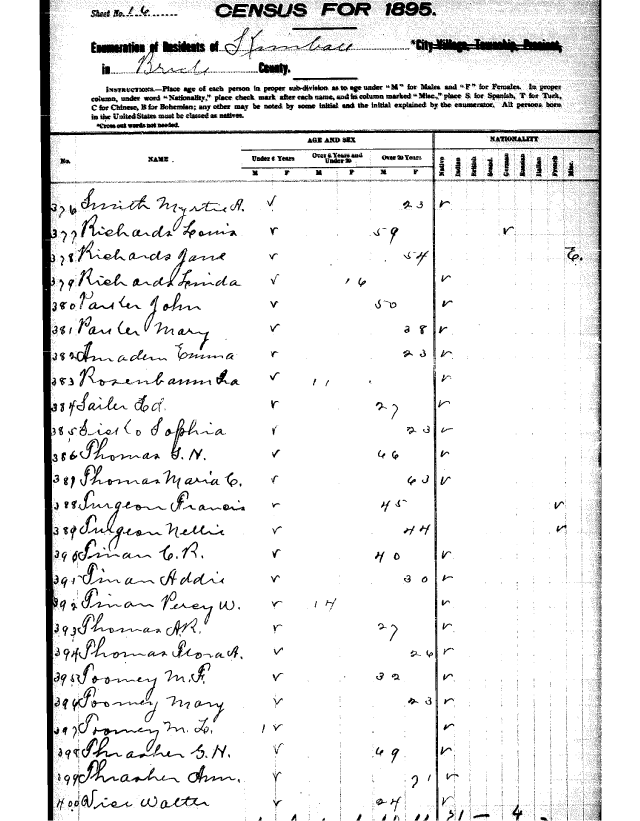 Sheet No. 16
CENSUS FOR 1895.
Enumeration of Residents of Kimball *City, Village, Township, Precinct,
in Brule County.
INSTRUCTIONS.—Place age of each person in proper sub-division as to age under "M" for Males and "F" for Females. In proper
column, under word "Nationality," place check mark after each name, and in column marked "Misc.," place S for Spanish, T for Turk,
C for Chinese, B for Bohemian; any other may be noted by some initial and the initial explained by the enumerator. All persons born
in the United States must be classed as natives.
*Cross out words not needed.
AGE AND SEX NATIONALITY
No. NAME. Under 6 Years Over 6 Years and Under 20 Over 20 Years Native Indian British Scand. German Russian Italian French Misc.
M F M F M F
376 Smith Myrtie A. ✓ 23 ✓
377 Richards Louis ✓ 59 ✓
378 Richards Jane ✓ 54 E.
379 Richards Linda ✓ 16 ✓
380 John ✓ 50 ✓
381 Mary ✓ 38 ✓
382 Amaden Emma ✓ 23 ✓
383 Rosenbaum ✓ 11 ✓
384 Sailer Ed. ✓ 27 ✓
385 Sophia ✓ 23 ✓
386 Thomas G. N. ✓ 66 ✓
387 Thomas Maria C. ✓ 63 ✓
388 Turgeon Francis ✓ 45 ✓
389 Turgeon Nellie ✓ 44 ✓
390 Tinan C. R. ✓ 40 ✓
391 Tinan Addie ✓ 30 ✓
392 Tinan Percy W. ✓ 14 ✓
393 Thomas A.R. ✓ 27 ✓
394 Thomas Flora A. ✓ 26 ✓
395 Toomey M. F. ✓ 32 ✓
396 Toomey Mary ✓ 23 ✓
397 Toomey M. L. 1 ✓ ✓
398 Thrasher G. N. ✓ 69 ✓
399 Thrasher Ann. ✓ 71 ✓
400 Vise Walter ✓ 24 ✓
21 — 4